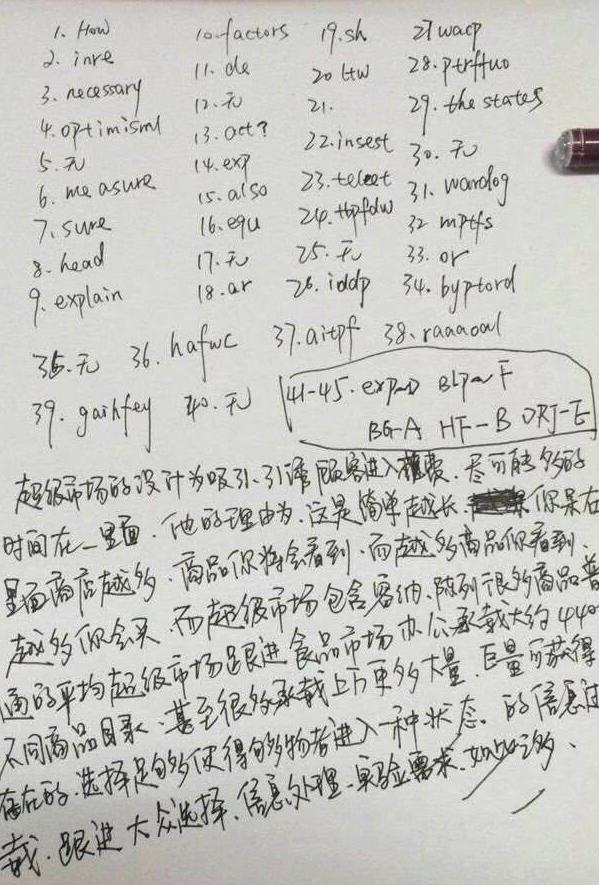 1. How 10. factors 19. sh 27 wacp
2. inre 11. de 20 ltw 28. ptrffuo
3. necessary 12. 无 21. 29. the states
4. optimisml 13. act? 22. insest 30. 无
5. 无 14. exp 23. teleet 31. wandog
6. measure 15. also 24. 32 mptfs
7. sure 16. equ 25. 无 33. or
8. head 17. 无 26. iddp 34. byptord
9. explain 18. ar
35. 无 36. hafwc 37. aitpf 38. raaaoal
39. gaihfey 40. 无 41-45. exp~D BLP~F
BG-A HF-B DRJ-E
超级市场的设计为吸引、引诱顾客进入 尽可能多的
时间在一里面. 他的理由为. 这是简单越长. 你呆在
里面商店越多. 商品你将会看到. 而越多商品你看到.
越多你会买. 而超级市场包含容纳. 陈列很多商品普
通的平均超级市场跟进食品市场办公承载大约440
不同商品目录. 甚至很多承载上万更多大量. 巨量可获得
存在的. 选择足够多使得购物者进入一种状态. 的信息过
载. 跟进大众选择. 信息处理. 实验要求. 如此之多、